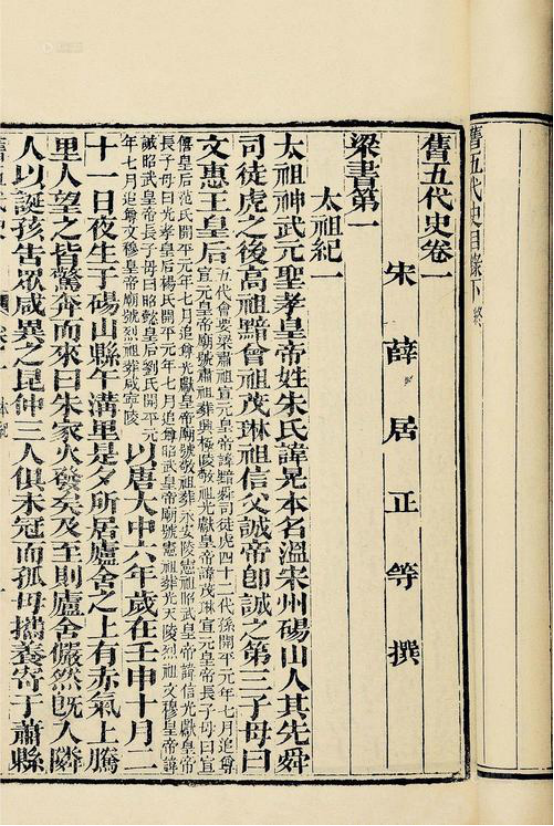 舊五代史目錄下 終
舊五代史卷一
宋 薛居正等撰
梁書第一
太祖紀一
太祖神武元聖孝皇帝姓朱氏諱晃本名溫宋州碭山人其先舜
司徒虎之後高祖黯曾祖茂琳祖信父誠帝卽誠之第三子母曰
文惠王皇后
五代會要梁肅祖宣元皇帝諱黯舜司徒虎四十二代孫開平元年七月追尊
宣元皇帝廟號肅祖葬興極陵敬祖光獻皇帝諱茂琳宣元皇帝長子母曰宣
僖皇后范氏開平元年七月追尊光獻皇帝廟號敬祖葬永安陵憲祖昭武皇帝諱信光獻皇帝
長子母曰光孝皇后楊氏開平元年七月追尊昭武皇帝廟號憲祖葬光天陵烈祖文穆皇帝諱
誠昭武皇帝長子母曰昭懿皇后劉氏開平元
年七月追尊文穆皇帝廟號烈祖葬咸寧陵
以唐大中六年歲在壬申十月二
十一日夜生于碭山縣午溝里是夕所居廬舍之上有赤氣上騰
里人望之皆驚奔而來曰朱家火發矣及至則廬舍儼然旣入隣
人以誕孩告眾咸異之昆仲三人俱未冠而孤母攜養寄于蕭縣